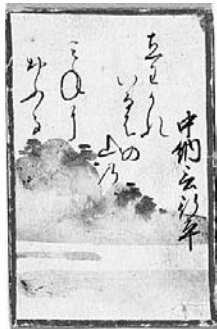 中納言行平
立わかれ
いなはの
山の
みねに
おふる